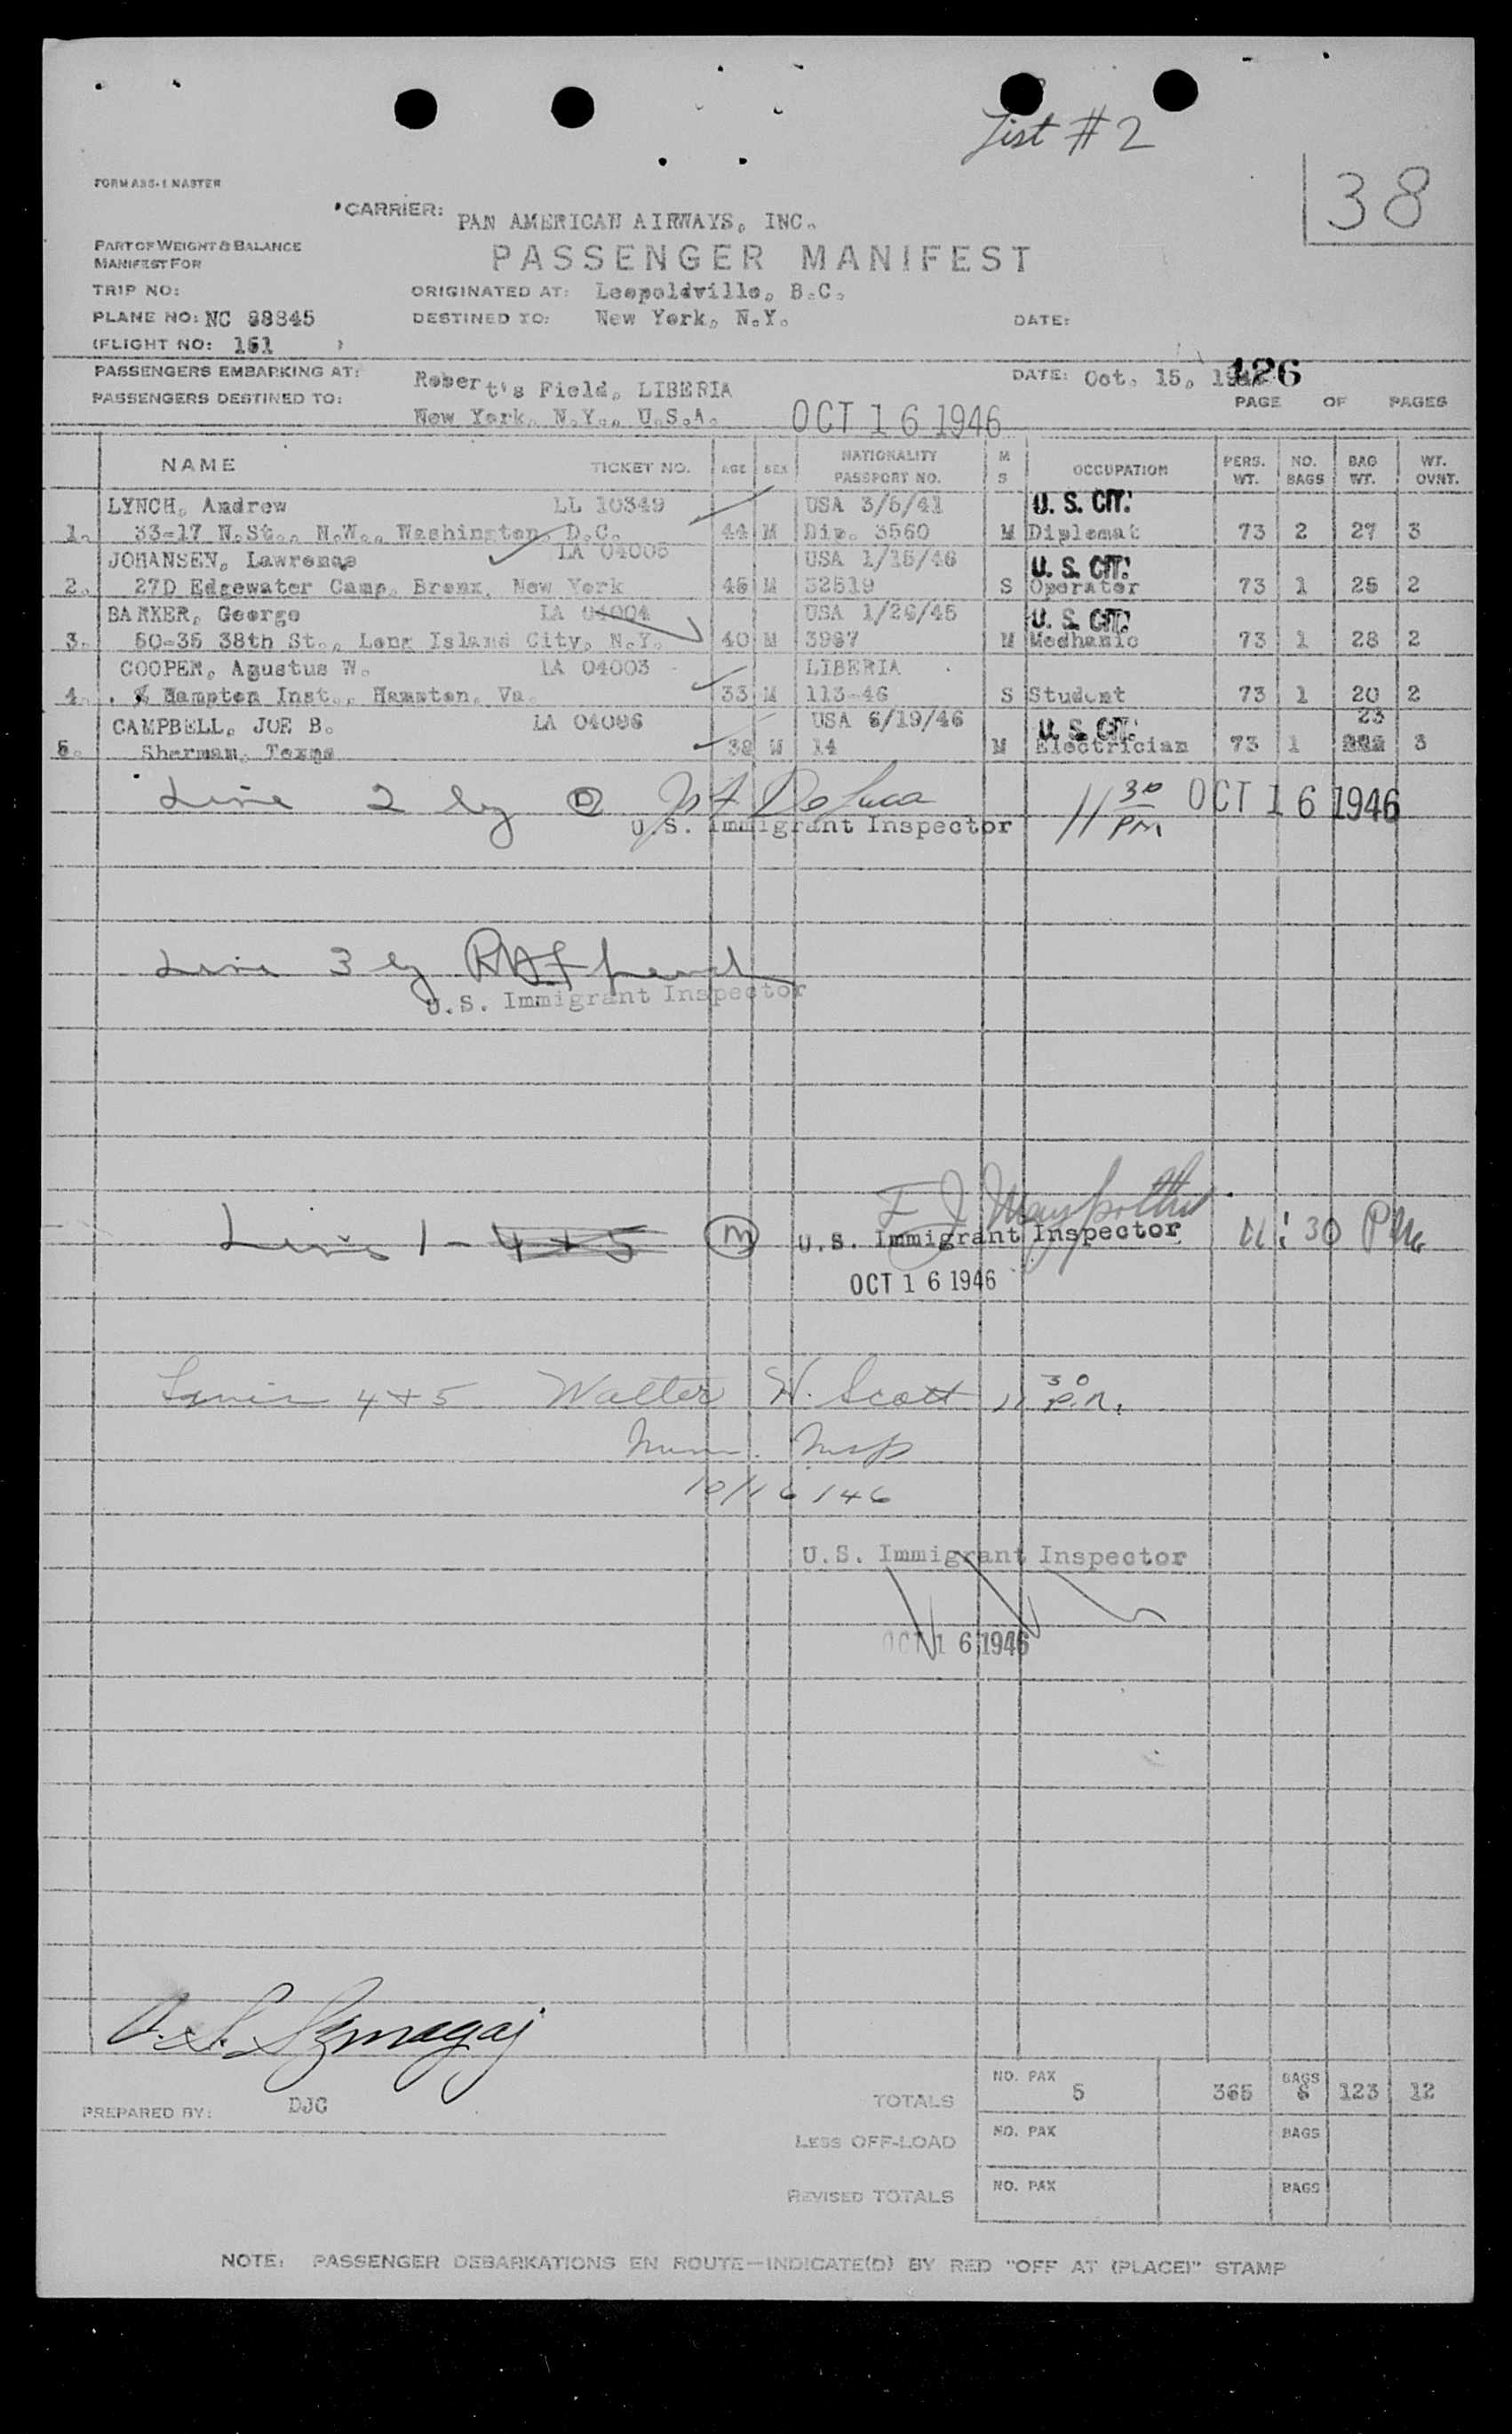 List #2
38
FORM ASS-1 MASTER
CARRIER: PAN AMERICAN AIRWAYS, INC.
PART OF WEIGHT & BALANCE
MANIFEST FOR
PASSENGER MANIFEST
TRIP NO: ORIGINATED AT: Leopoldville, B.C.
PLANE NO: NC 88845 DESTINED TO: New York, N.Y. DATE:
(FLIGHT NO: 151 )
PASSENGERS EMBARKING AT: Robert's Field, LIBERIA DATE: Oct. 15, 126
PASSENGERS DESTINED TO: New York, N.Y., U.S.A. OCT 16 1946 PAGE OF PAGES
NAME TICKET NO. AGE SEX NATIONALITY PASSPORT NO. M S OCCUPATION PERS. WT. NO. BAGS BAG WT. WT. OVNT.
LYNCH, Andrew LL 10349 USA 3/5/41 U. S. CIT.
1. 33-17 N.St., N.W., Washington, D.C. 44 M Dip. 3560 M Diplomat 73 2 27 3
JOHANSEN, Lawrence LA 04005 USA 1/15/46 U. S. CIT.
2. 27D Edgewater Camp, Bronx, New York 45 M 32519 S Operator 73 1 25 2
BARKER, George LA 04004 USA 1/26/45 U. S. CIT.
3. 50-35 38th St., Long Island City, N.Y. 40 M 3987 M Mechanic 73 1 28 2
COOPER, Agustus W. LA 04003 LIBERIA
4. % Hampton Inst., Hampton, Va. 33 M 113-46 S Student 73 1 20 2
CAMPBELL, JOE B. LA 04096 USA 6/19/46 U. S. CIT. 23
5. Sherman, Texas 38 M 14 M Electrician 73 1 3
Line 2 by D De Luca 11 30 PM OCT 16 1946
U.S. Immigrant Inspector
Line 3 by
U.S. Immigrant Inspector
Line 1 - 4 + 5 M U.S. Immigrant Inspector 11:30 PM
OCT 16 1946
Lines 4+5 Walter W. Scott 11 30 P.M.
Imm. Insp
10/16/46
U.S. Immigrant Inspector
OCT 16 1946
PREPARED BY: DJC
TOTALS NO. PAX 5 365 BAGS 6 123 12
LESS OFF-LOAD NO. PAX BAGS
REVISED TOTALS NO. PAX BAGS
NOTE: PASSENGER DEBARKATIONS EN ROUTE—INDICATE(D) BY RED "OFF AT (PLACE)" STAMP